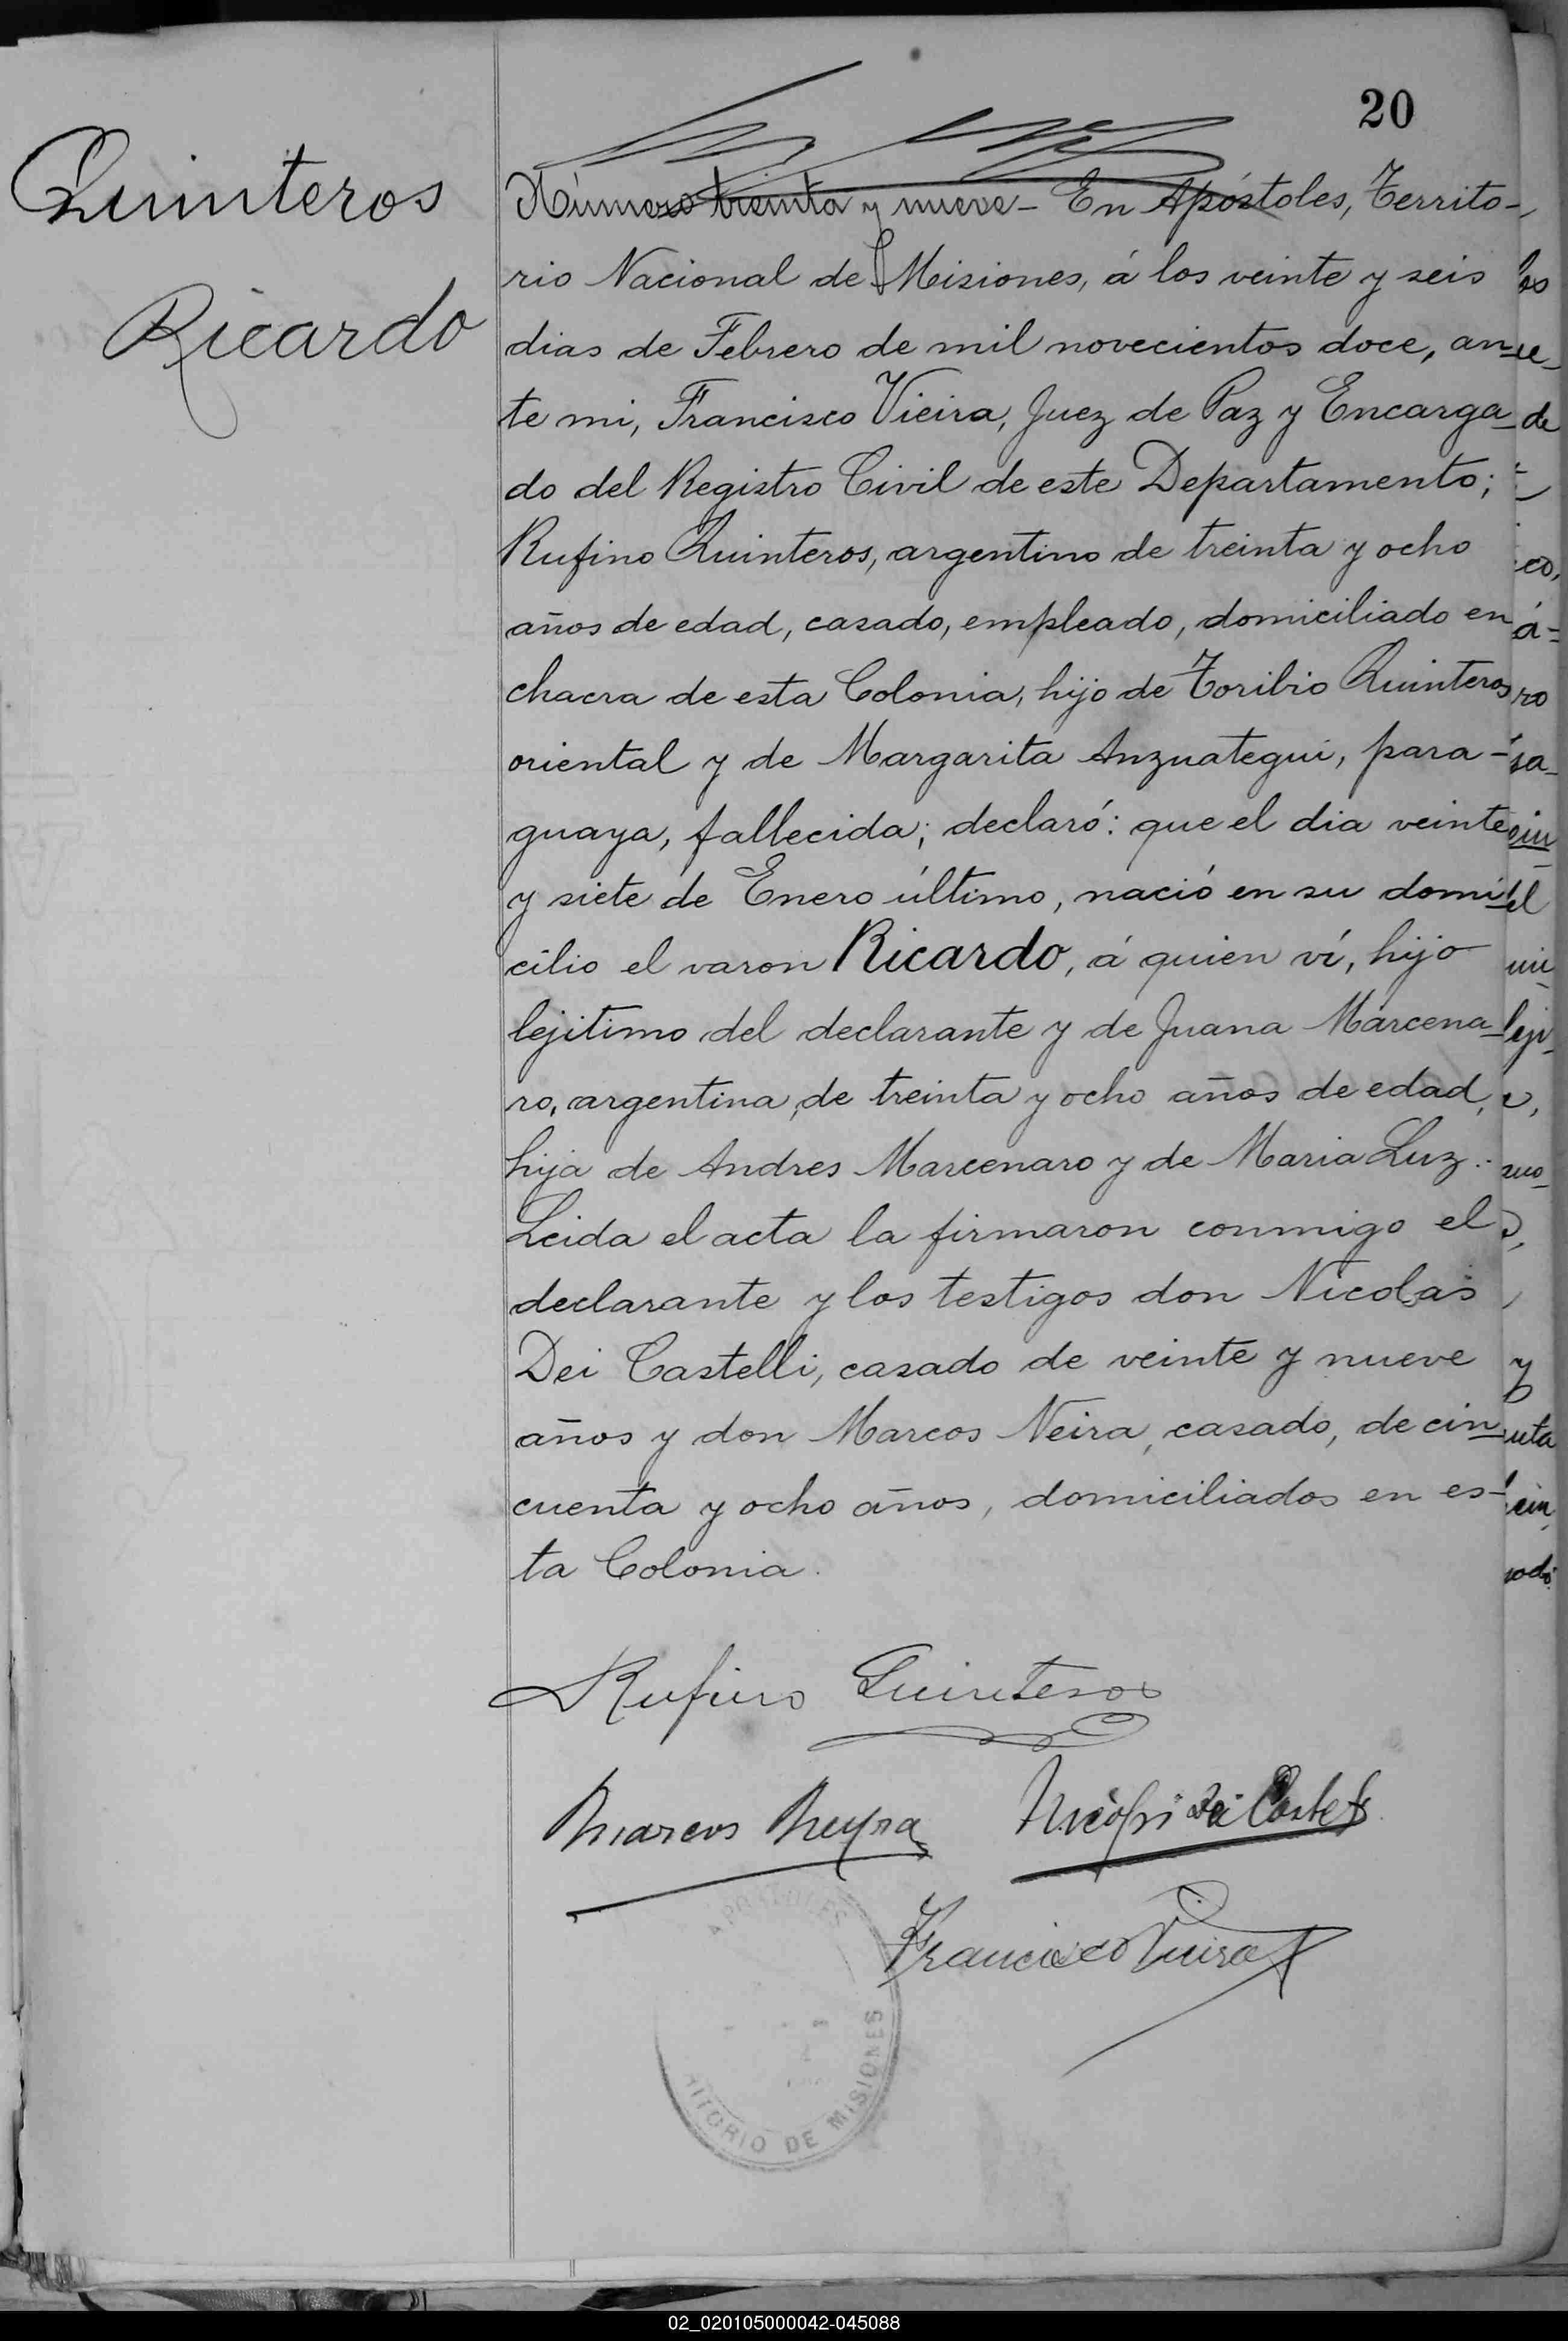 20
Quinteros
Ricardo
Número treinta y nueve - En Apóstoles, Territo-
rio Nacional de Misiones, á los veinte y seis
dias de Febrero de mil novecientos doce, an-
te mi, Francisco Vieira, Juez de Paz y Encarga-
do del Registro Civil de este Departamento;
Rufino Quinteros, argentino de treinta y ocho
años de edad, casado, empleado, domiciliado en
chacra de esta Colonia, hijo de Toribio Quinteros
oriental y de Margarita Anzuategui, para-
guaya, fallecida; declaró: que el dia veinte
y siete de Enero último, nació en su domi-
cilio el varon Ricardo, á quien ví, hijo
lejitimo del declarante y de Juana Marcena-
ro, argentina, de treinta y ocho años de edad,
hija de Andres Marcenaro y de Maria Luz.-
Leida el acta la firmaron conmigo el
declarante y los testigos don Nicolás
Dei Castelli, casado de veinte y nueve
años y don Marcos Neira, casado, de cin-
cuenta y ocho años, domiciliados en es-
ta Colonia.
Rufino Quinteros
Marcos Neyra
Dei Castelli
Francisco Vieira
APOSTOLES
ITORIO DE MISIONES
02_020105000042-045088